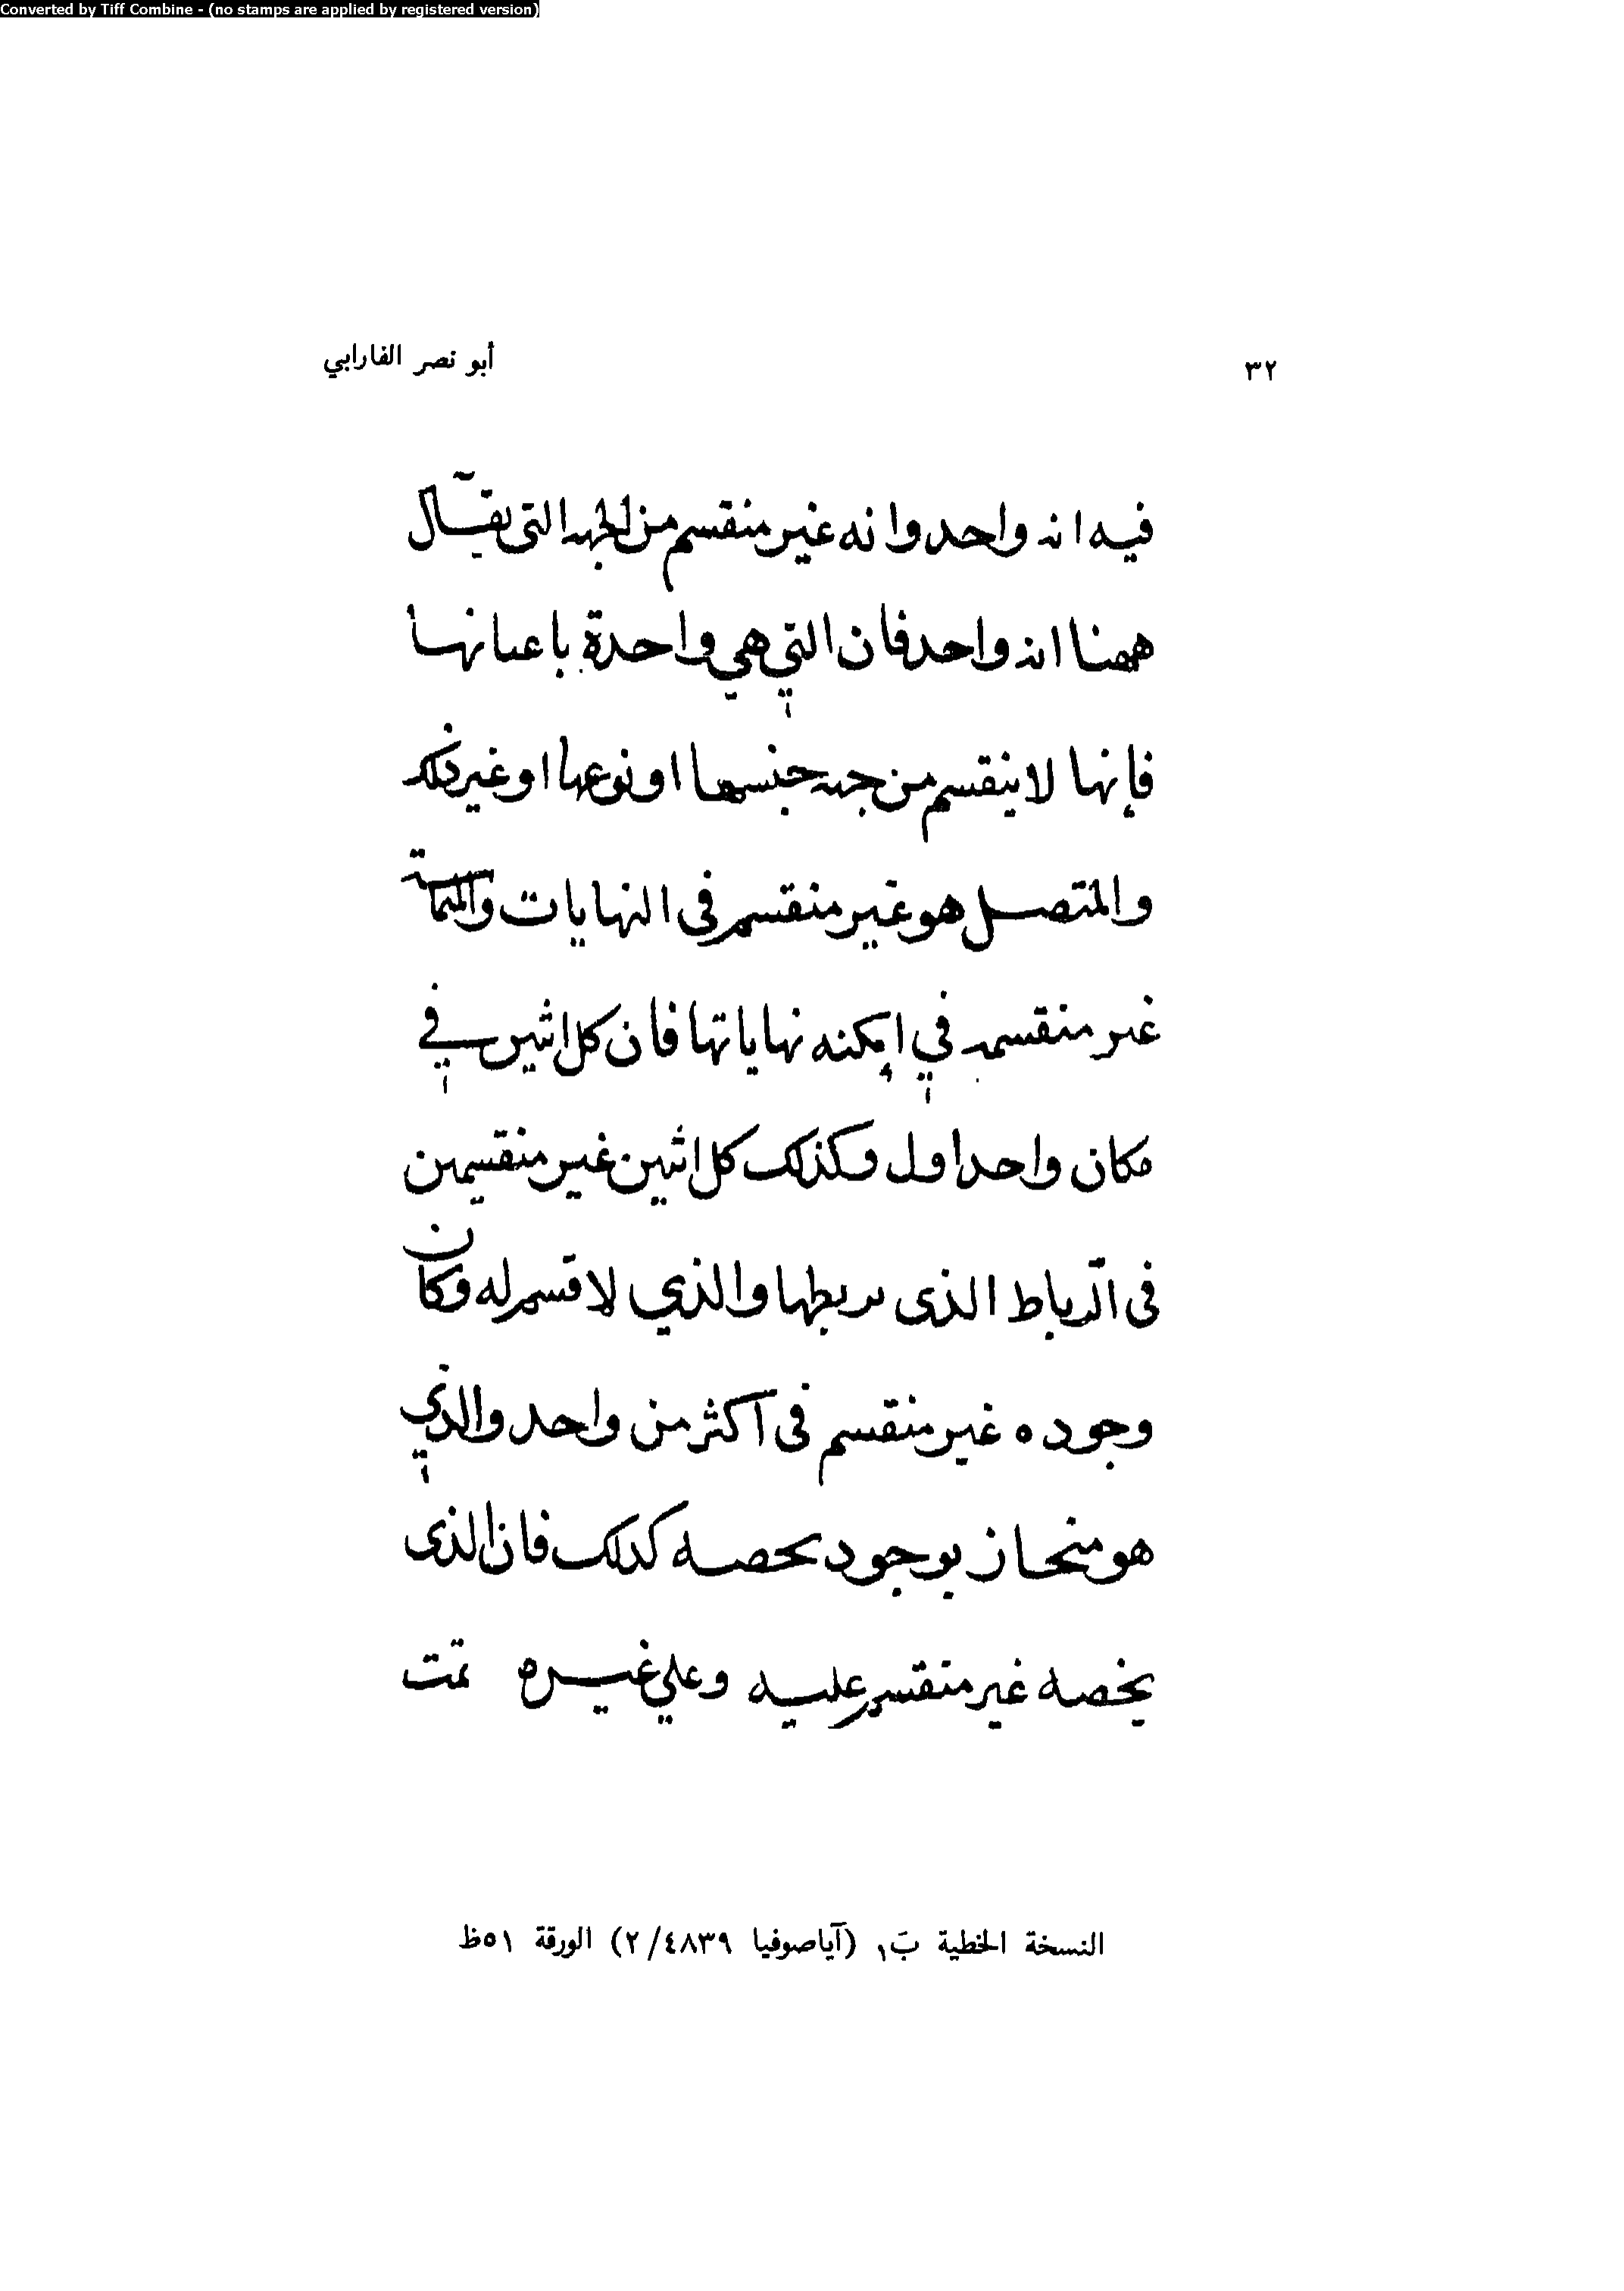 Converted by Tiff Combine - (no stamps are applied by registered version)
٣٢
أبو نصر الفارابي
فيه انه واحد وانه غير منقسم من الجهه التى يقال
ههنا انه واحد فان التي هي واحدة باعيانها
فإنها لا ينقسم من جهه جنسها او نوعها او غير ذلك
والمتصل هو غير منقسم فى النهايات والمماسة
غير منقسمه في إمكنه نهاياتها فان كل اثنين في
مكان واحد اول وكذلك كل اثنين غير منقسمين
فى الرباط الذى يربطها والذي لا قسم له وكان
وجوده غير منقسم فى اكثر من واحد والذي
هو منحاز بوجود يخصه كذلك فان الذى
يخصه غير منقسم عليه وعلي غيره تمت
النسخة الخطية بَ١ (آياصوفيا ٤٨٣٩/٢) الورقة ٥١ظ